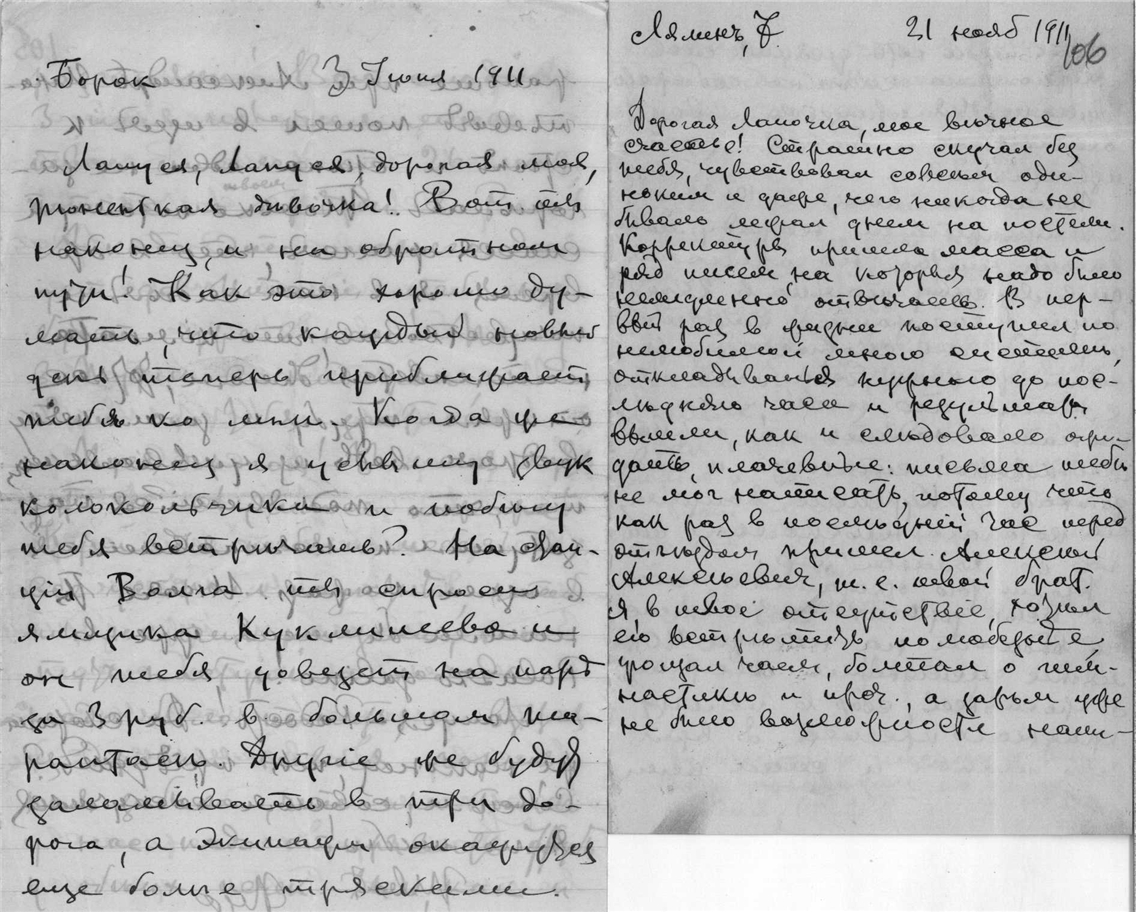 Борок 3 Июня 1911
Лапуся, Лапуся, дорогая моя,
дивочка! Вот ты
наконец и на обратном
пути! Как это хорошо ду-
мать, что каждый новый
день теперь приближает
тебя ко мне. Когда же
наконец я услышу звук
колокольчика и побегу
тебя встречать? На стан-
ции Волга ты спроси
ямщика Куклинсева и
он тебя довезет на
за 3 руб. в большом та-
рантасе. Другие же будут
заламывать в три до-
рога, а экипажи окажутся
еще более тряскими.
Лялинъ, 7. 21 нояб 1911
106
Дорогая Лапочка, мое вечное
счастье! Страшно скучал без
тебя, чувствовал совсем оди-
ноким и даже, чего никогда не
бывало лежал днем на постели.
Корректуры пришла масса и
ряд писем, на которыя надо было
немедленно отвечать. В пер-
вый раз в жизни поступил по
нелюбимой мною системе,
откладыванья нужного до пос-
ледняго часа и результаты
вышли, как и следовало ожи-
дать, плачевные: письма тебе
не мог написать, потому что
как раз в последний час перед
отъездом пришел Алексей
Алексеевич, т. е. твой брат.
Я, в твое отсутствие,
его встретить
угощал чаем, болтал о гим-
настике и проч., а затем уже
не было возможности напи-